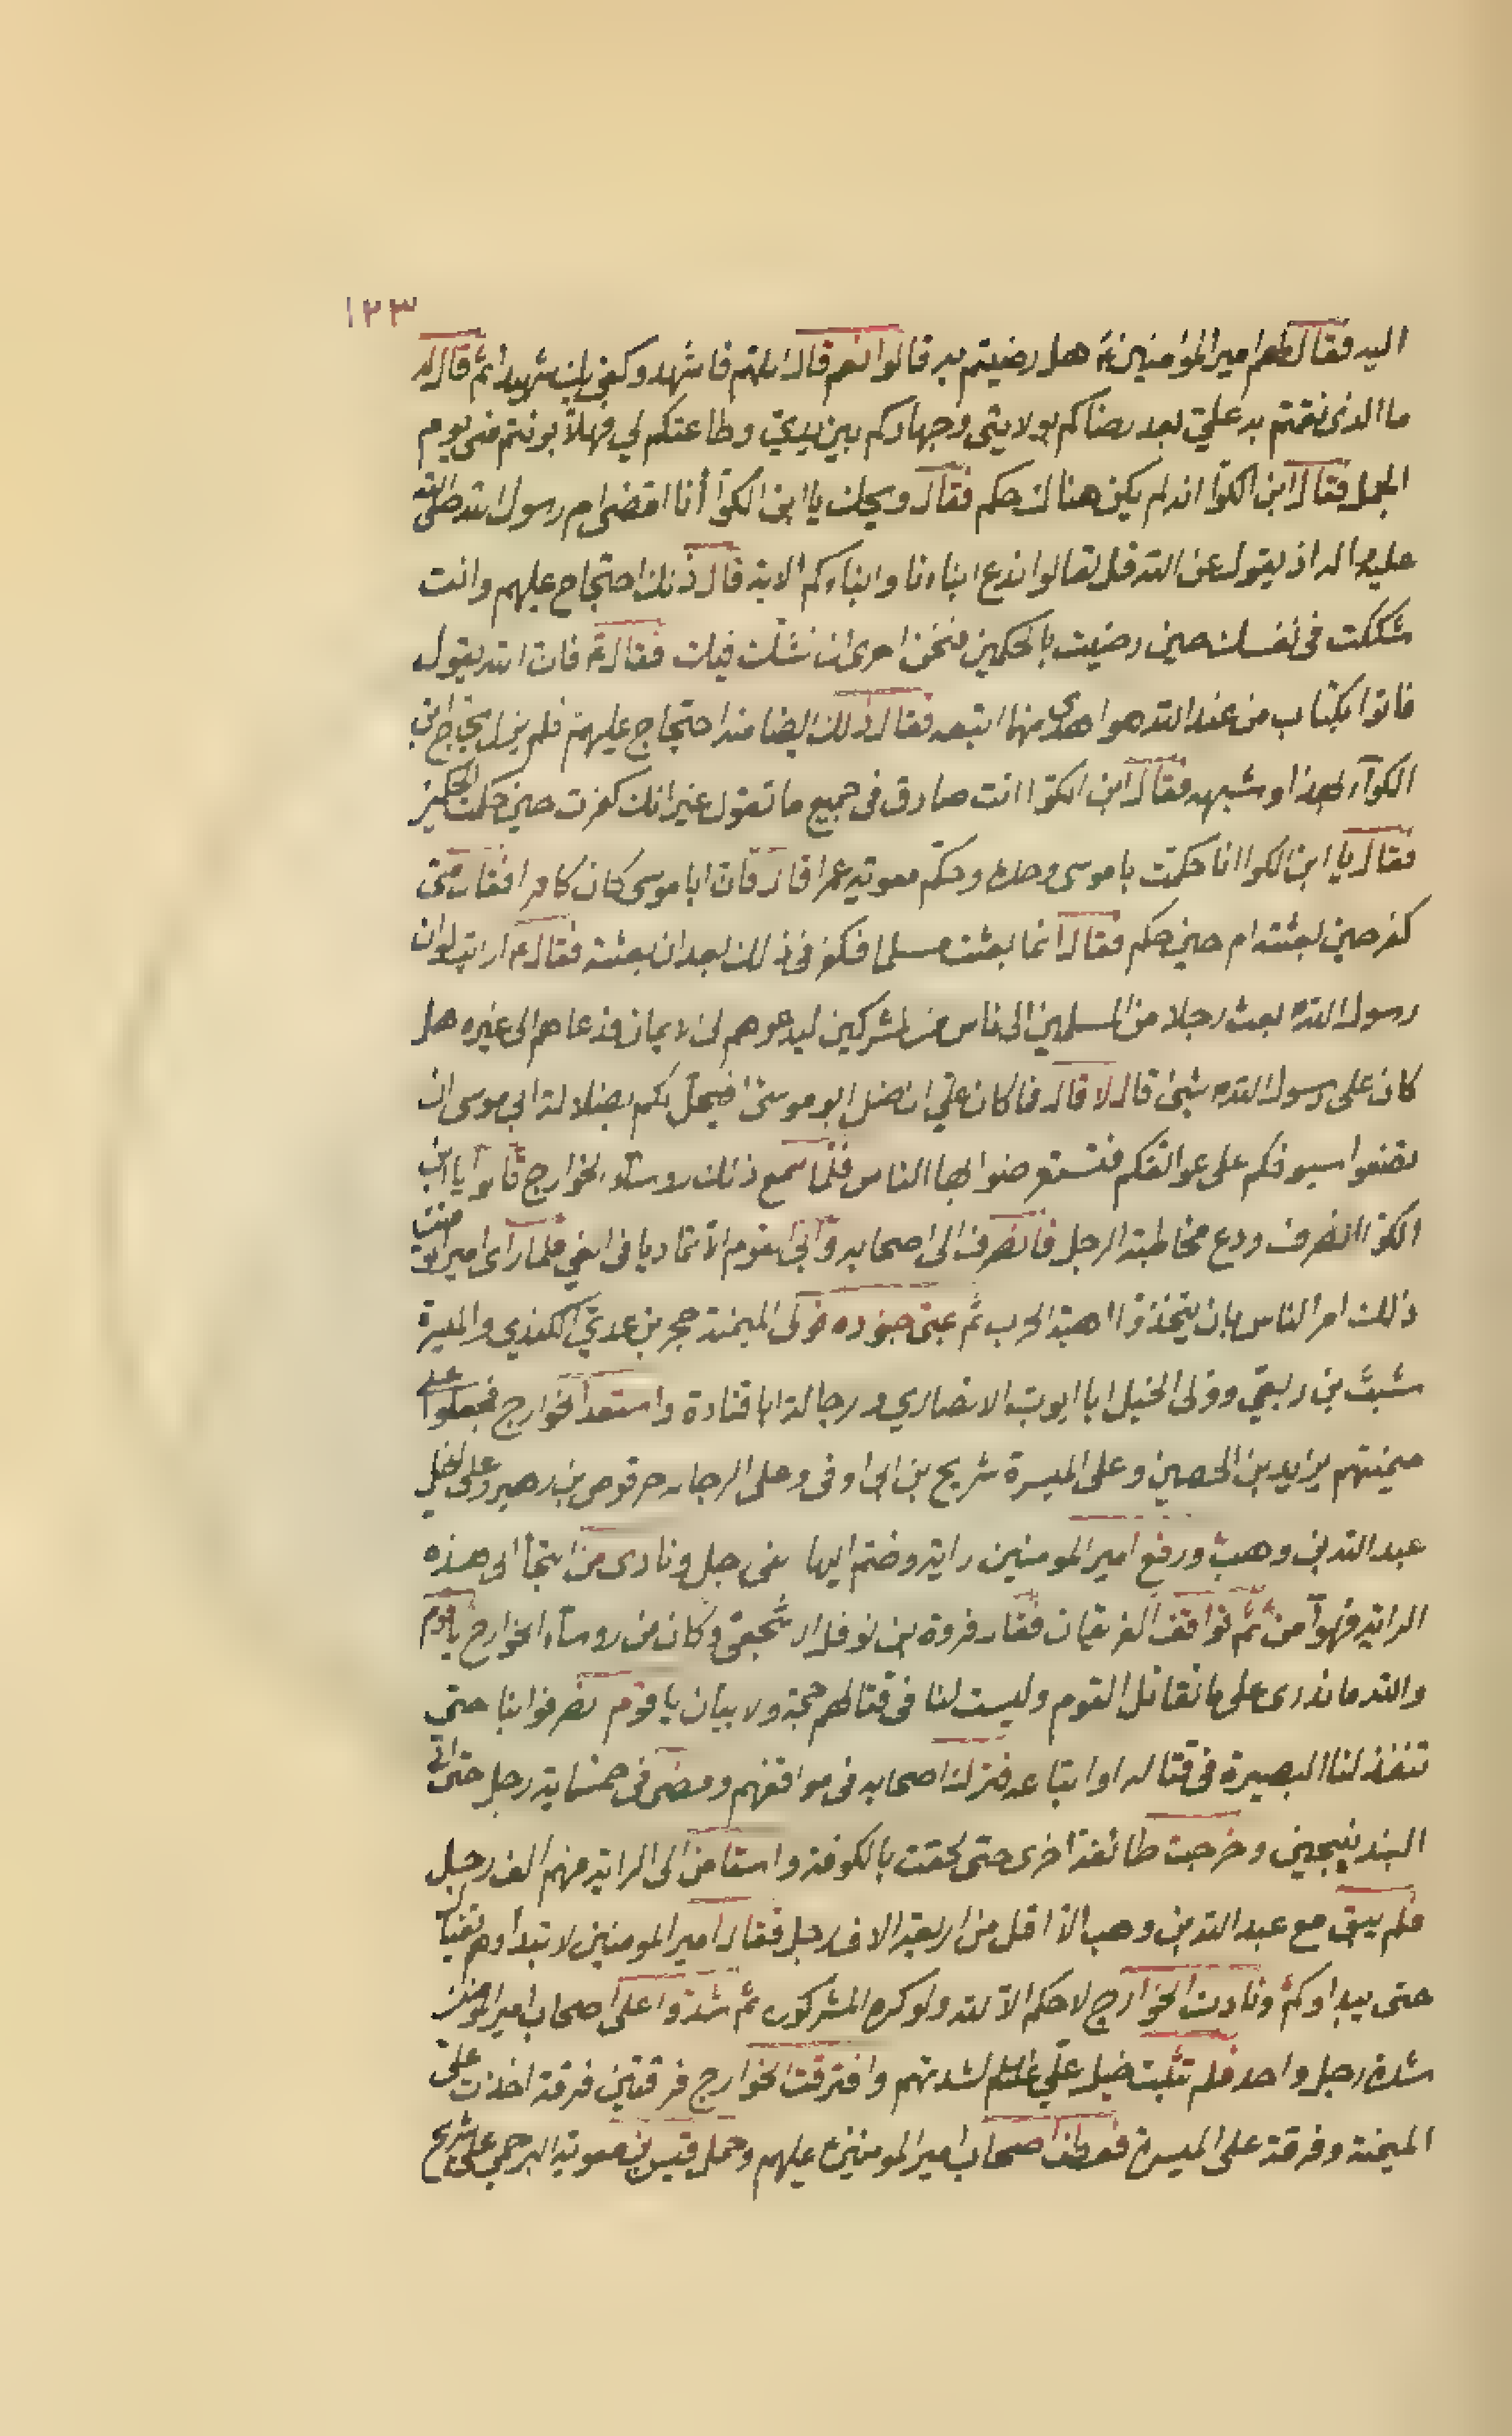 ١٢٣
اليه فقال لهم امير المؤمنين ع هل رضيتم به قالوا نعم قال اللهم فاشهد وكفى بك شهيدا ثم قال له
ما الذى نقمتم به علىّ بعد رضاكم بولايتى وجهادكم بين يديّ وطاعتكم لي فهلّا برئتم منى يوم
الجمل فقال ابن الكوّا انه لم يكن هناك حكم فقال ويحك يا ابن الكوّا أنا اهدى ام رسول الله صلى الله
عليه واله اذ يقول عن الله قل تعالوا ندع ابناءنا وابناءكم الاية قال ذلك احتجاج عليهم وانت
شككت فى نفسك حين رضيت بالحكمين فنحن احرى ان نشك فيك فقال ع فان الله يقول
فاتوا بكتاب من عند الله هو اهدى منهما اتبعه فقال ذلك ايضا منه احتجاج عليهم فلم يزل يحتج ابن
الكوآء لهذا وشبهه فقال ابن الكوّا انت صادق فى جميع ما تقول غير انك كفرت حين حكمت الحكمين
فقال يا ابن الكوا انا حكمت با موسى وحده وحكّم معوية عمرا قال فان ابا موسى كان كافرا فقال متى
كفر حين بعثته ام حين حكم فقال انما بعثته مسلما فكفر فى ذلك بعد ان بعثته فقال ع ارايت لو ان
رسول الله بعث رجلا من المسلمين الى ناس من المشركين ليدعوهم الى الايمان فدعاهم الى غيره هل
كان على رسول الله شئ قال لا قال فما كان علىّ ان ضل ابو موسى افيحل لكم بضلالة ابى موسى ان
تضعوا سيوفكم على عواتقكم فتستعرضوا بها الناس فلما سمع ذلك روسآء الخوارج قالوا يا ابن
الكوّا انصرف ودع مخاطبة الرجل فانصرف الى اصحابه وأبى القوم الّا تماديا فى الغي فلما رأى امير المؤمنين
ذلك امر الناس بان يتخذوا اهبة الحرب ثم عبّى جنوده فولى الميمنة حجر بن عدىّ الكندي والميسرة
شبث بن ربعيّ وولى الخيل ابا ايوب الانصاري ورجالة ابا قتادة واستعد الخوارج فجعلوا على
ميمنتهم يزيد بن الحصين وعلى الميسرة شريح بن ابى اوفى وعلى الرجاله حرقوص بن زهير وعلى الخيل
عبد الله بن وهب ورفع امير المومنين راية وضم اليها الفى رجل ونادى من التجأ الى هذه
الراية فهو آمن ثم تواقف الفريقان فقال فروة بن نوفل الاشجعىّ وكان من روسآء الخوارج يا قوم
والله ما ندرى على ما نقاتل القوم وليست لنا فى قتالهم حجة ولا بيان يا قوم انصرفوا بنا حتى
تنفذ لنا البصيرة فى قتاله او اتباعه فترك اصحابه فى مواقفهم ومضى فى خمسماية رجل حتى اتى
البندنيجين وخرجت طائفة اخرى حتى لحقت بالكوفة واستامن الى الراية منهم الف رجل
فلم يبق مع عبد الله بن وهب الّا اقل من اربعة الاف رجل فقال امير المومنين لا تبدأوهم بقتال
حتى يبداوكم ونادت الخوارج لا حكم الّا لله ولو كره المشركون ثم شدوا على اصحاب امير المومنين
شدة رجل واحد فلم تثبت خيل علىّ عليه السلام لشدتهم وافترقت الخوارج فرقتين فرقة اخذت على
الميمنة وفرقة على الميسرة فعطف اصحاب امير المومنين عليهم وحمل قيس بن معوية البرجمي على شريح